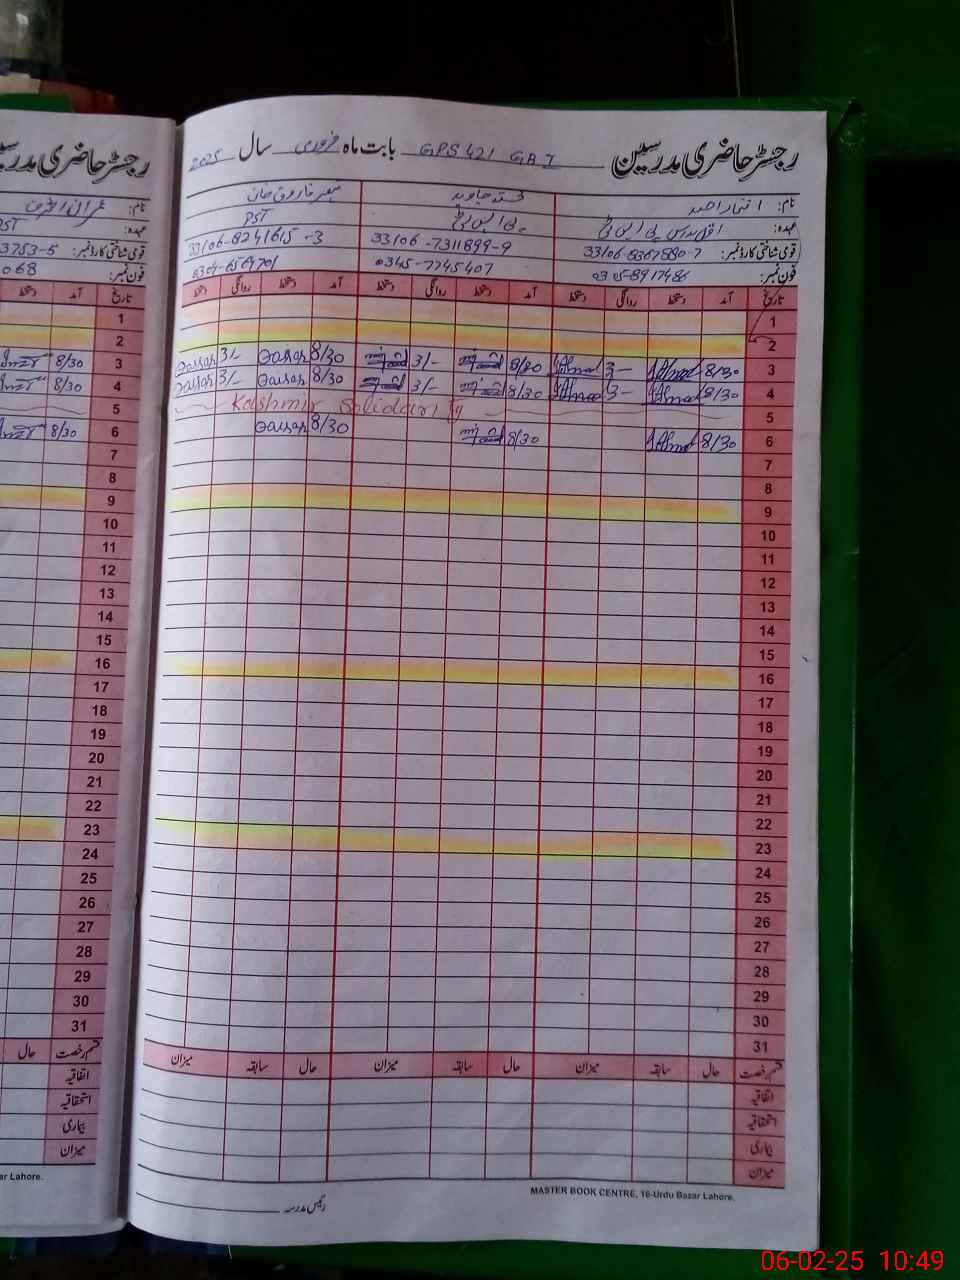 رجسٹر حاضری مدرسین GPS 421 GBT بابت ماہ فروری سال 2025
نام: افتخار احمد محمد جاوید عمر فاروق خان
عہدہ: پی ایس ٹی PST
قومی شناختی کارڈ نمبر: 33106-8367880-7 33106-7311899-9 33106-8241615-3
فون نمبر: 0345-7745407
تاریخ آمد دستخط روانگی دستخط آمد دستخط روانگی دستخط آمد دستخط روانگی دستخط
1
2
3 8/30 3/- 8/30 3/- 8/30 3/-
4 8/30 3/- 8/30 3/- 8/30 3/-
5 Kashmir Solidarity
6 8/30 8/30 8/30
7
8
9
10
11
12
13
14
15
16
17
18
19
20
21
22
23
24
25
26
27
28
29
30
31
قسم رخصت حال سابقہ میزان حال سابقہ میزان حال سابقہ میزان
اتفاقیہ
استحقاقیہ
بیماری
میزان
MASTER BOOK CENTRE, 16-Urdu Bazar Lahore.
رئیس مدرسہ
رجسٹر حاضری مدرسین
3753-5
068
تاریخ آمد دستخط
1
2
3 8/30
4 8/30
5
6 8/30
7
8
9
10
11
12
13
14
15
16
17
18
19
20
21
22
23
24
25
26
27
28
29
30
31
قسم رخصت حال
اتفاقیہ
استحقاقیہ
بیماری
میزان
ar Lahore.
06-02-25 10:49